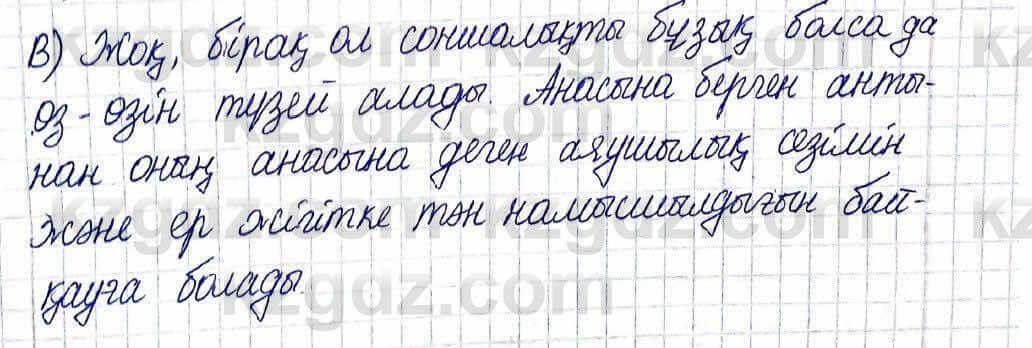 В) Жоқ, бірақ ол соншалықты бұзық болса да
өз-өзін түзей алады. Анасына берген анты-
нан оның анасына деген аяушылық сезімін
және ер жігітке тән намысшылдығын бай-
қауға болады